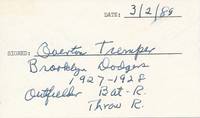 DATE: 3/2/89
SIGNED: Overton Tremper
Brooklyn Dodgers
1927-1928
Outfielder Bat-R.
Throw R.